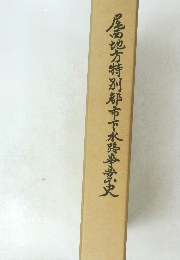 尾西地方特別都市下水路事業史